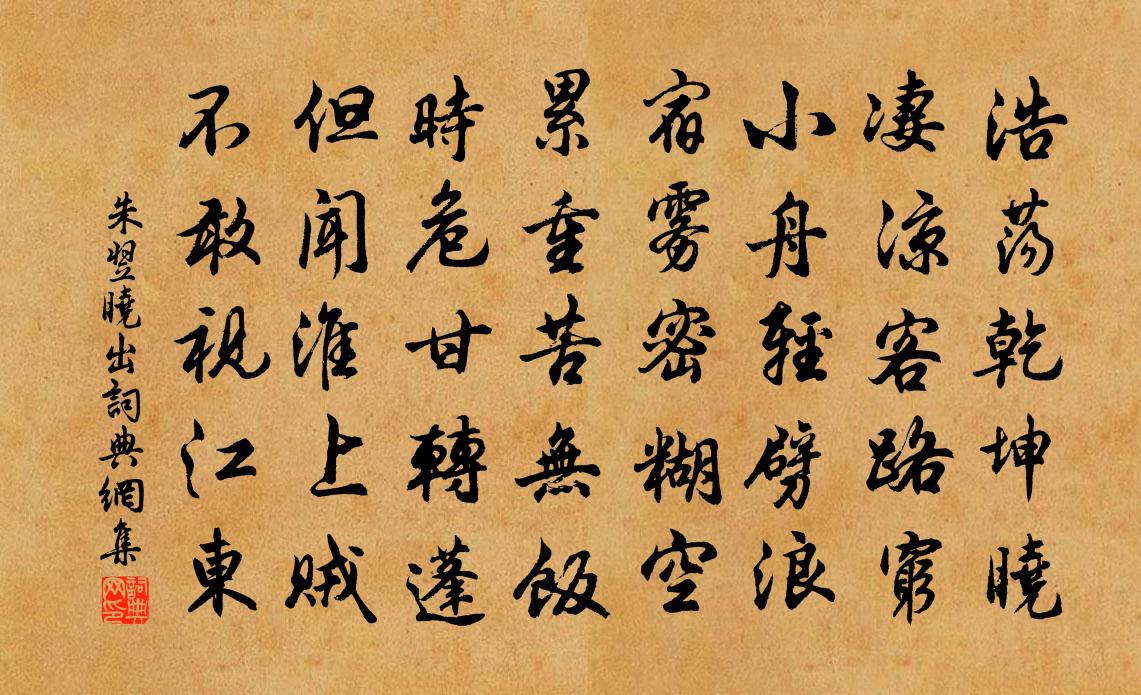 浩蕩乾坤曉
凄涼客路窮
小舟輕劈浪
宿雾密糊空
累重苦無飯
時危甘轉蓬
但聞淮上賊
不敢視江東
朱翌曉出詞典網集
詞典网印